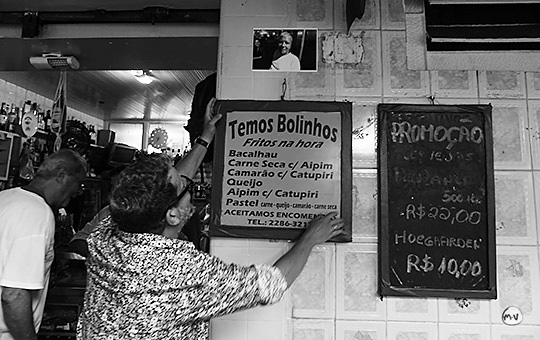 Temos Bolinhos
Fritos na hora
Bacalhau
Carne Seca c/ Aipim
Camarão c/ Catupiri
Queijo
Aipim c/ Catupiri
Pastel carne - queijo - camarão - carne seca
ACEITAMOS
TEL.: 2286-321
PROMOÇÃO
CERVEJAS
500 ML
R$22,00
HOEGAARDEN
R$10,00
MV